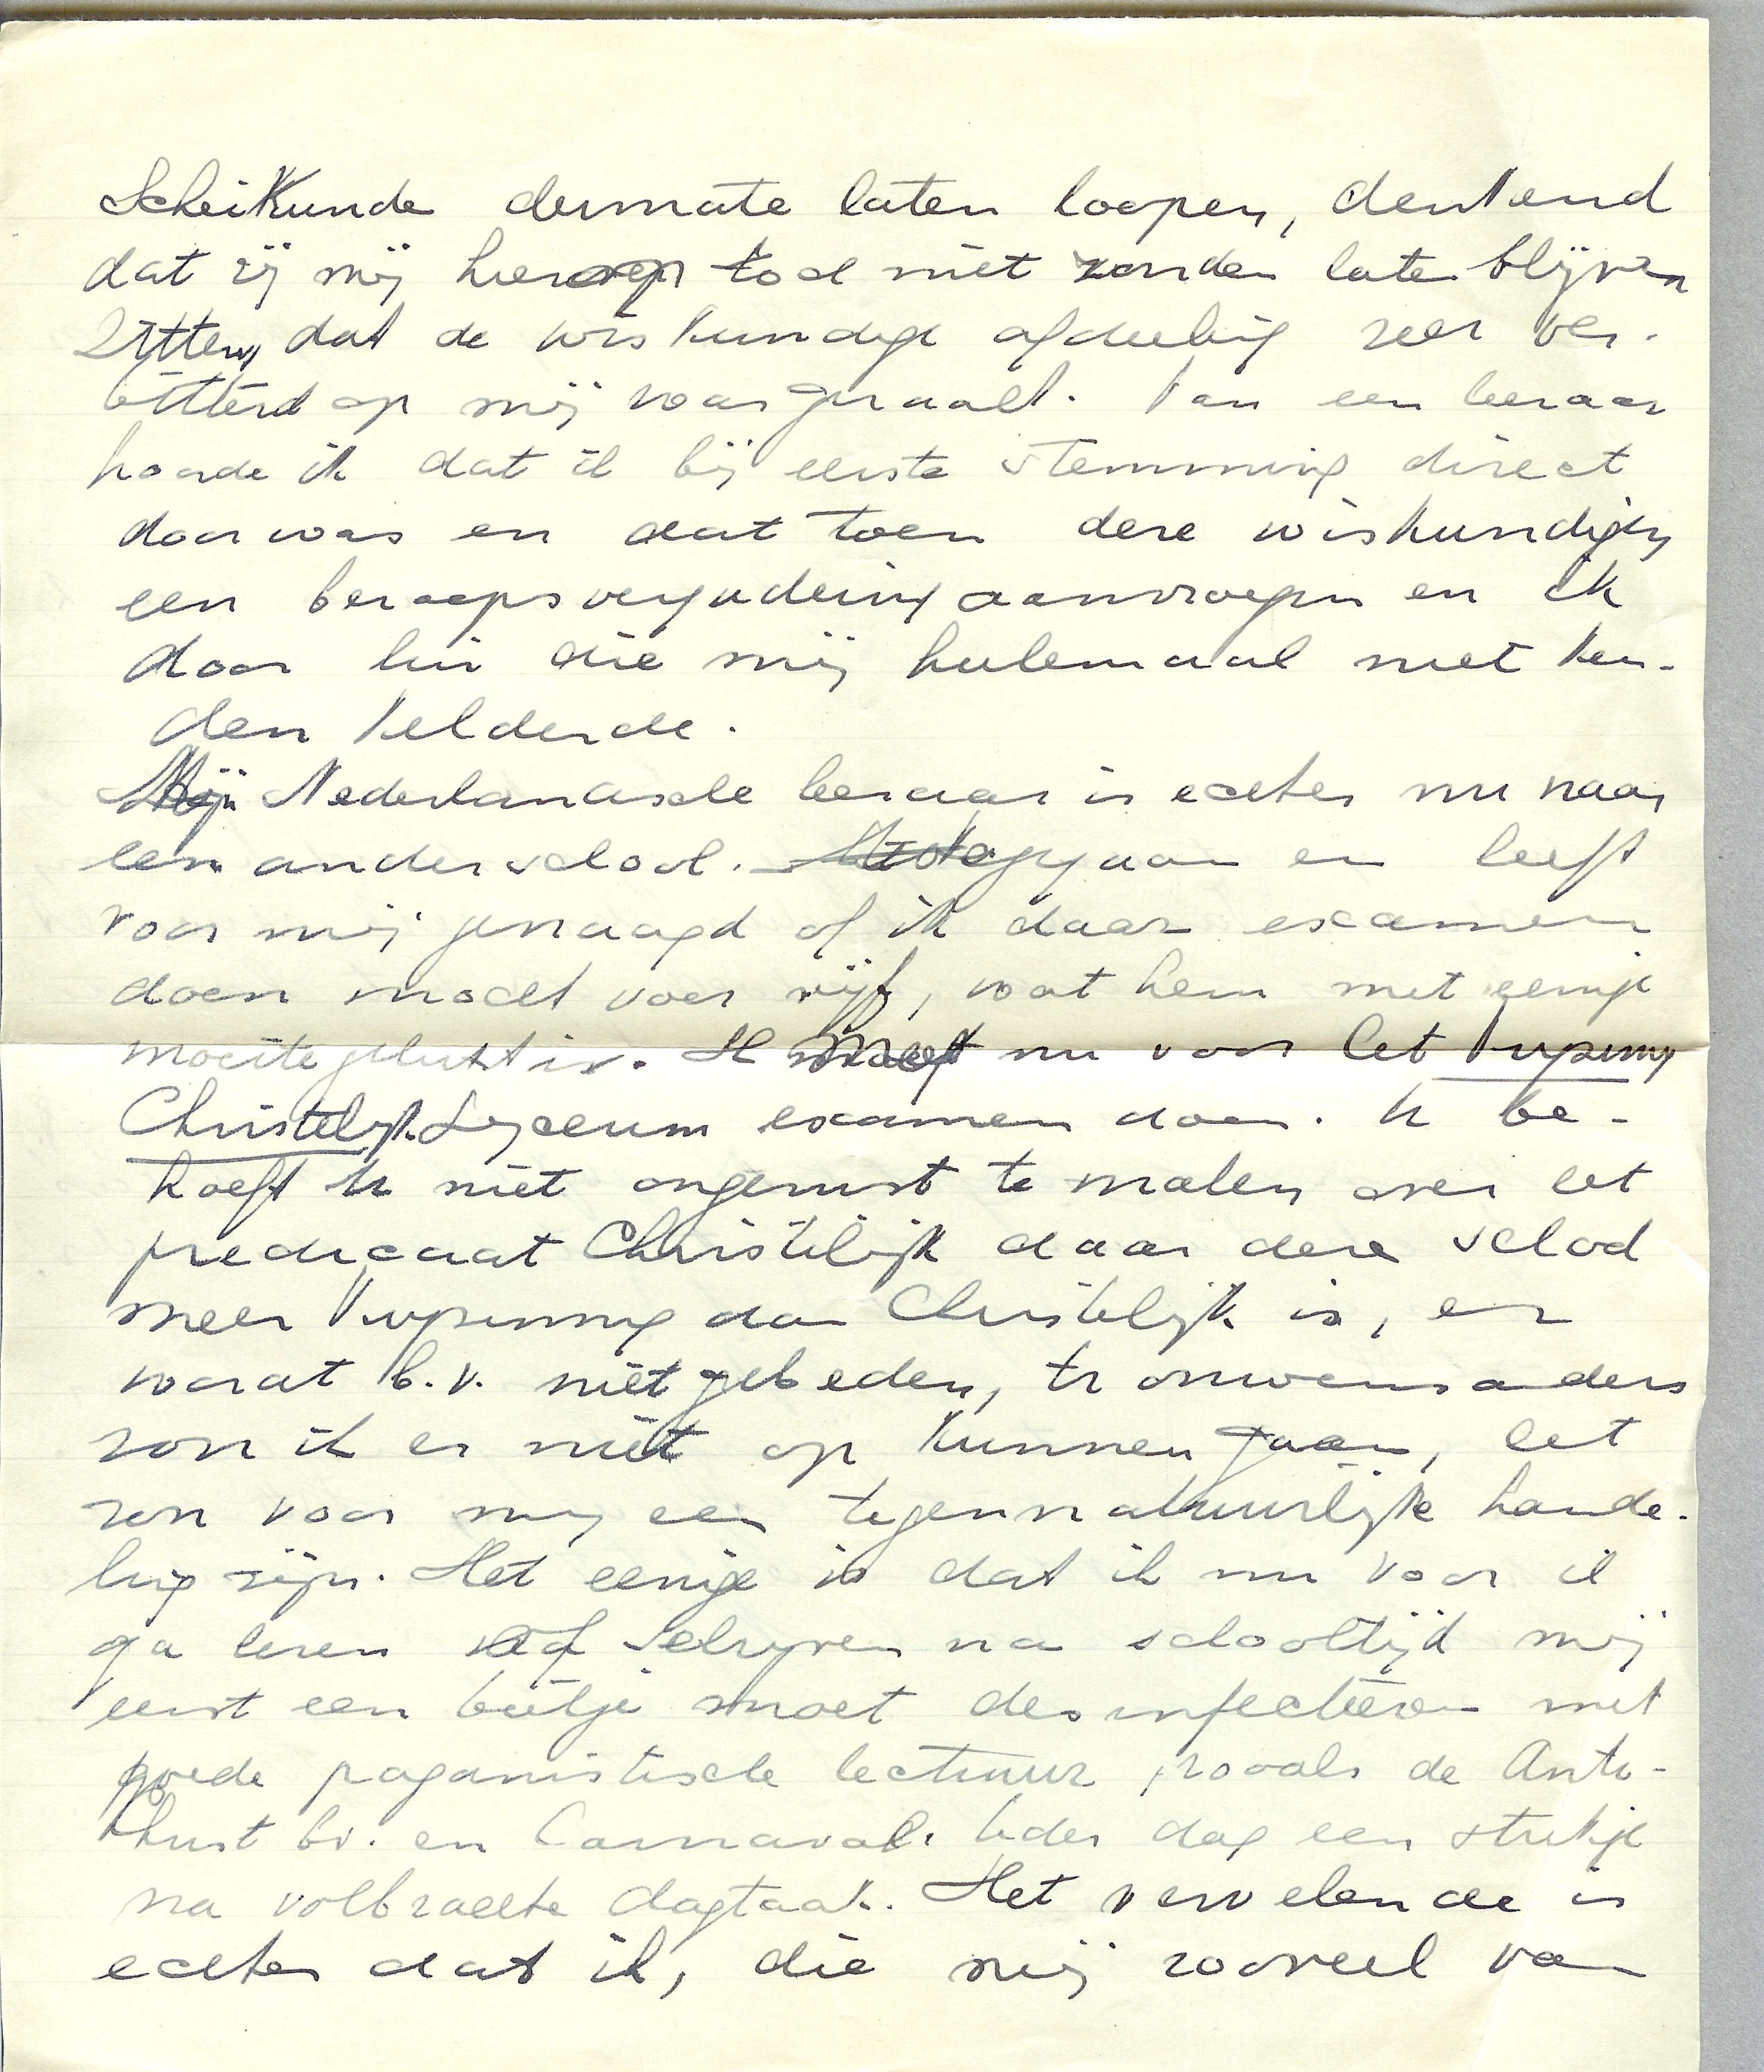 Scheikunde dermate laten loopen, denkend
dat zij mij hierop toch niet zouden laten blijven
zitten, dat de wiskundige afdeeling zeer ver-
bitterd op mij was geraakt. Van een leeraar
hoorde ik dat ik bij eerste stemming direct
door was en dat toen deze wiskundigen
een beroepsvergadering aanvroegen en ik
door lui die mij heelemaal niet ken-
den kelderde.
Mijn Nederlandsche leeraar is echter nu naar
een andere school gegaan en heeft
voor mij gevraagd of ik daar examen
doen mocht voor vijf, wat hem met eenige
moeite gelukt is. Ik moet nu voor het Vrijzinnig
Christelijk Lyceum examen doen. U be-
hoeft U niet ongerust te maken over het
predicaat Christelijk daar deze school
meer Vrijzinnig dan Christelijk is, er
wordt b.v. niet gebeden, trouwens anders
zou ik er niet op kunnen gaan, het
zou voor mij een tegennatuurlijke hande-
ling zijn. Het eenige is dat ik nu voor ik
ga lezen of schrijven na schooltijd mij
eerst een beetje moet desinfecteeren met
goede paganistische lectuur, zooals de Anti-
christ bv. en Carnaval. Ieder dag een stukje
na volbrachte dagtaak. Het vervelende is
echter dat ik, die mij zooveel van